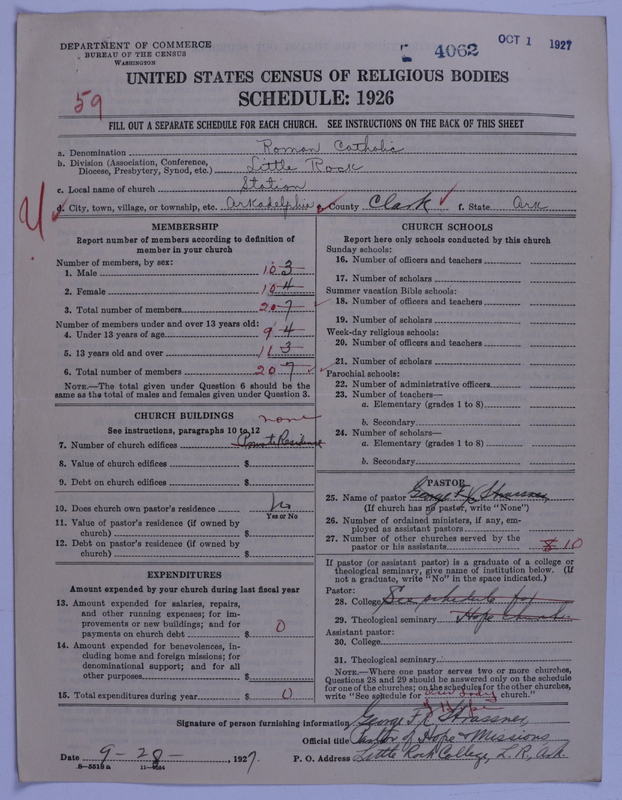 DEPARTMENT OF COMMERCE
BUREAU OF THE CENSUS
WASHINGTON
4062
OCT 1 1927
UNITED STATES CENSUS OF RELIGIOUS BODIES
SCHEDULE: 1926
59
FILL OUT A SEPARATE SCHEDULE FOR EACH CHURCH. SEE INSTRUCTIONS ON THE BACK OF THIS SHEET
a. Denomination Roman Catholic
b. Division (Association, Conference,
Diocese, Presbytery, Synod, etc.) Little Rock
c. Local name of church Station
d. City, town, village, or township, etc. Arkadelphia e. County Clark f. State Ark
MEMBERSHIP
Report number of members according to definition of
member in your church
Number of members, by sex:
1. Male 10 3
2. Female 10 4
3. Total number of members 20 7
Number of members under and over 13 years old:
4. Under 13 years of age 9 4
5. 13 years old and over 11 3
6. Total number of members 20 7
NOTE.—The total given under Question 6 should be the
same as the total of males and females given under Question 3.
CHURCH BUILDINGS
none
See instructions, paragraphs 10 to 12
7. Number of church edifices Private Residence
8. Value of church edifices $
9. Debt on church edifices $
10. Does church own pastor's residence No
Yes or No
11. Value of pastor's residence (if owned by
church) $
12. Debt on pastor's residence (if owned by
church) $
EXPENDITURES
Amount expended by your church during last fiscal year
13. Amount expended for salaries, repairs,
and other running expenses; for im-
provements or new buildings; and for
payments on church debt $ 0
14. Amount expended for benevolences, in-
cluding home and foreign missions; for
denominational support; and for all
other purposes $
15. Total expenditures during year $ 0
CHURCH SCHOOLS
Report here only schools conducted by this church
Sunday schools:
16. Number of officers and teachers
17. Number of scholars
Summer vacation Bible schools:
18. Number of officers and teachers
19. Number of scholars
Week-day religious schools:
20. Number of officers and teachers
21. Number of scholars
Parochial schools:
22. Number of administrative officers
23. Number of teachers—
a. Elementary (grades 1 to 8)
b. Secondary
24. Number of scholars—
a. Elementary (grades 1 to 8)
b. Secondary
PASTOR
25. Name of pastor George F. X. Strassner
(If church has no pastor, write "None")
26. Number of ordained ministers, if any, em-
ployed as assistant pastors
27. Number of other churches served by the
pastor or his assistants 8 10
If pastor (or assistant pastor) is a graduate of a college or
theological seminary, give name of institution below. (If
not a graduate, write "No" in the space indicated.)
Pastor:
28. College See schedule for
29. Theological seminary Hope church
Assistant pastor:
30. College
31. Theological seminary
NOTE.—Where one pastor serves two or more churches,
Questions 28 and 29 should be answered only on the schedule
for one of the churches; on the schedules for the other churches,
write "See schedule for church."
Hope
Signature of person furnishing information George F. X. Strassner
Official title Pastor of Hope & Missions
Date 9-28-, 1927. P. O. Address Little Rock College, L. R., Ark.
8-5518a 11-9594